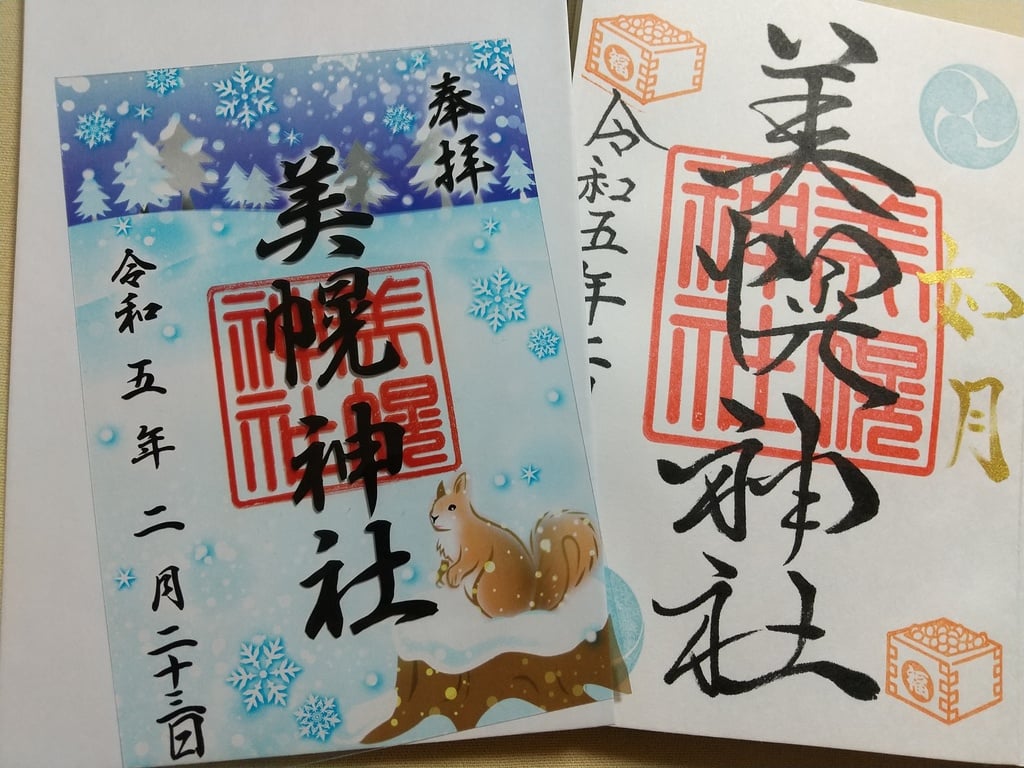 奉拝
美幌神社
美幌神社
令和五年二月二十三日
福
如月
美幌神社
美幌神社
令和五年二
福